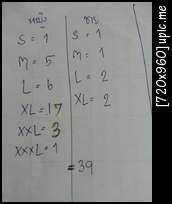 หญิง ชาย
S = 1 S = 1
M = 5 M = 1
L = 6 L = 2
XL = 17 XL = 2
XXL = 3
XXXL = 1
= 39
[720x960] upic.me